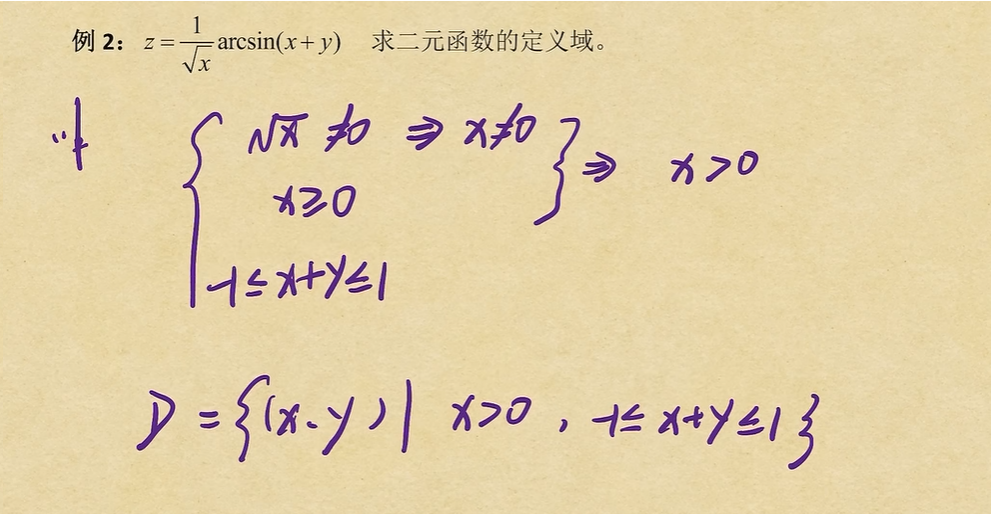 例 2: z = 1/√x arcsin(x + y) 求二元函数的定义域。
√x ≠0 ⇒ x≠0
x≥0
⇒ x>0
-1≤x+y≤1
D = {(x、y) | x>0 , -1≤ x+y ≤1}